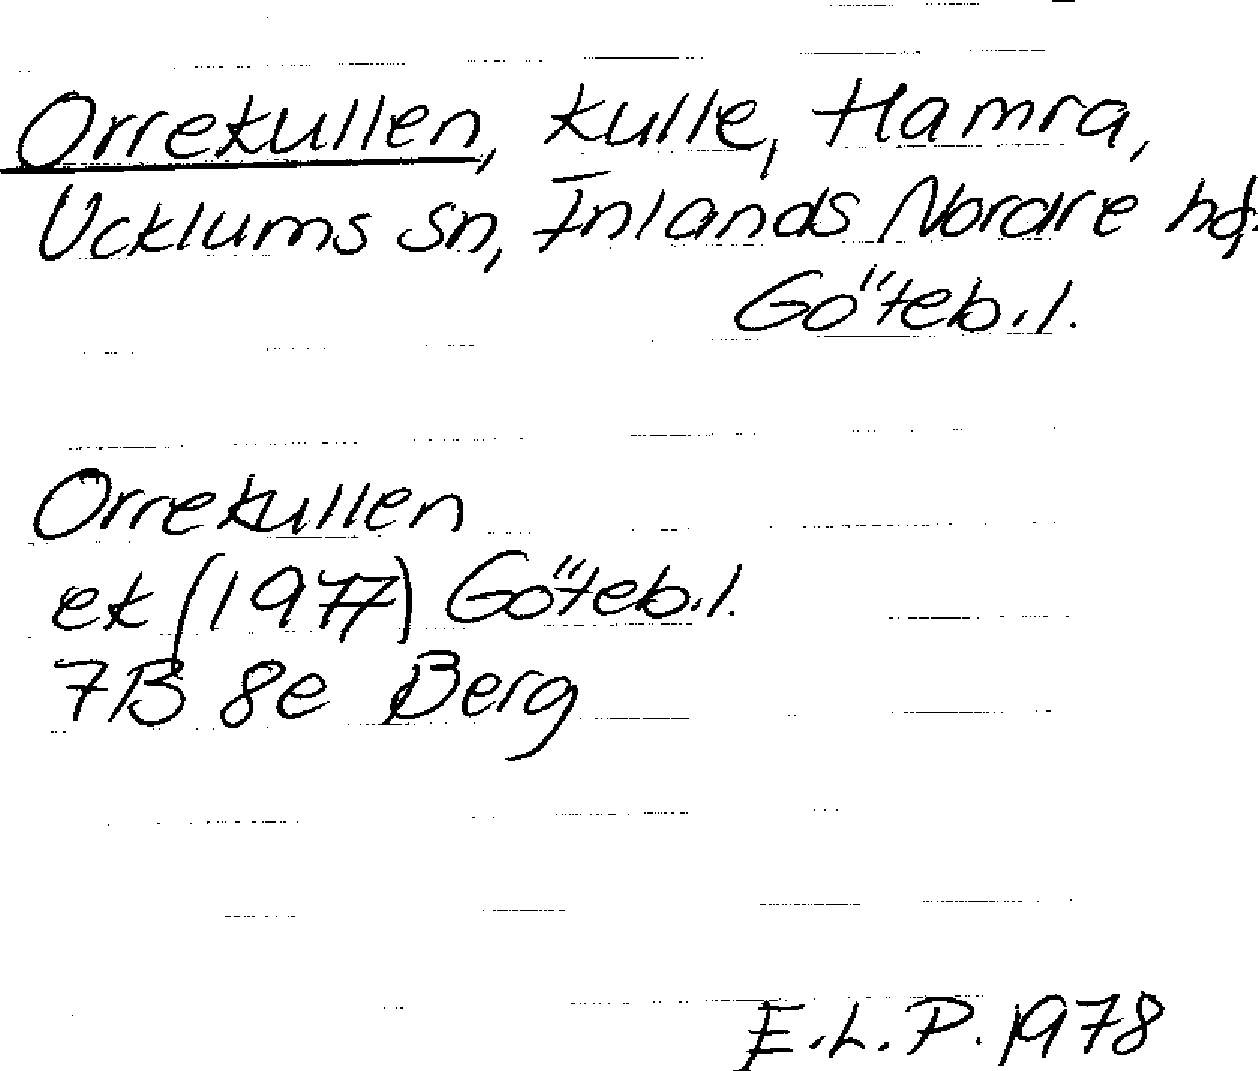 Orrekullen, kulle, Hamra,
Ucklums sn, Inlands Nordre hd.
Göteb.l.
Orrekullen
ek (1977) Göteb.l.
7B 8e Berg
E.L.P. 1978